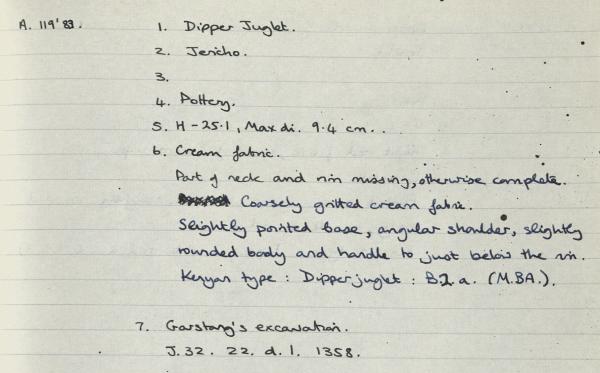 A. 119'83. 1. Dipper Juglet.
2. Jericho.
3.
4. Pottery.
5. H - 25.1, Max di. 9.4 cm..
6. Cream fabric.
Part of neck and rim missing, otherwise complete.
Coarsely gritted cream fabric.
Slightly pointed base, angular shoulder, slightly
rounded body and handle to just below the rim.
Kenyon type : Dipper juglet : B2.a. (M.BA.).
7. Garstang's excavation.
J. 32. 22. d. 1. 1358.